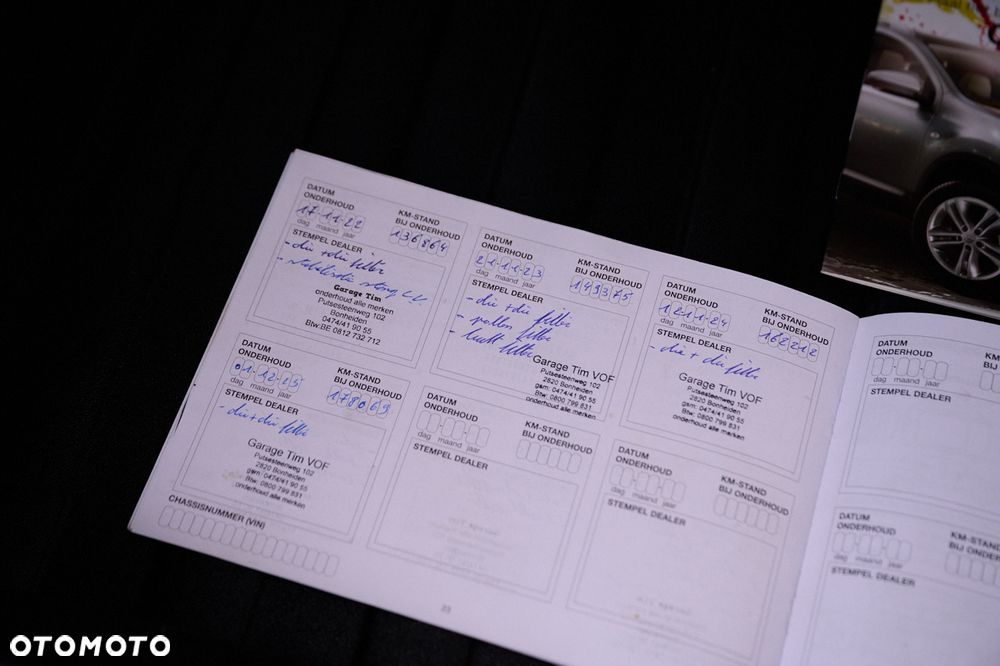 DATUM
ONDERHOUD
17-11-22
dag maand jaar
KM-STAND
BIJ ONDERHOUD
136864
STEMPEL DEALER
Garage Tim
onderhoud alle merken
Putsesteenweg 102
Bonheiden
0474/41 90 55
Btw:BE 0812 732 712
DATUM
ONDERHOUD
21-11-23
dag maand jaar
KM-STAND
BIJ ONDERHOUD
149375
STEMPEL DEALER
Garage Tim VOF
Putsesteenweg 102
2820 Bonheiden
gsm: 0474/41 90 55
Btw: 0800 799 831
onderhoud alle merken
DATUM
ONDERHOUD
dag maand jaar
KM-STAND
BIJ ONDERHOUD
162212
STEMPEL DEALER
Garage Tim VOF
Putsesteenweg 102
2820 Bonheiden
gsm: 0474/41 90 55
Btw: 0800 799 831
onderhoud alle merken
DATUM
ONDERHOUD
01-12-25
dag maand jaar
KM-STAND
BIJ ONDERHOUD
178069
STEMPEL DEALER
Garage Tim VOF
Putsesteenweg 102
2820 Bonheiden
gsm: 0474/41 90 55
Btw: 0800 799 831
onderhoud alle merken
DATUM
ONDERHOUD
dag maand jaar
KM-STAND
BIJ ONDERHOUD
STEMPEL DEALER
DATUM
ONDERHOUD
dag maand jaar
KM-STAND
BIJ ONDERHOUD
STEMPEL DEALER
CHASSISNUMMER (VIN)
23
DATUM
ONDERHOUD
dag maand jaar
STEMPEL DEALER
DATUM
ONDERHOUD
dag maand jaar
KM-STAND
BIJ ONDERHOUD
STEMPEL DEALER
OTOMOTO